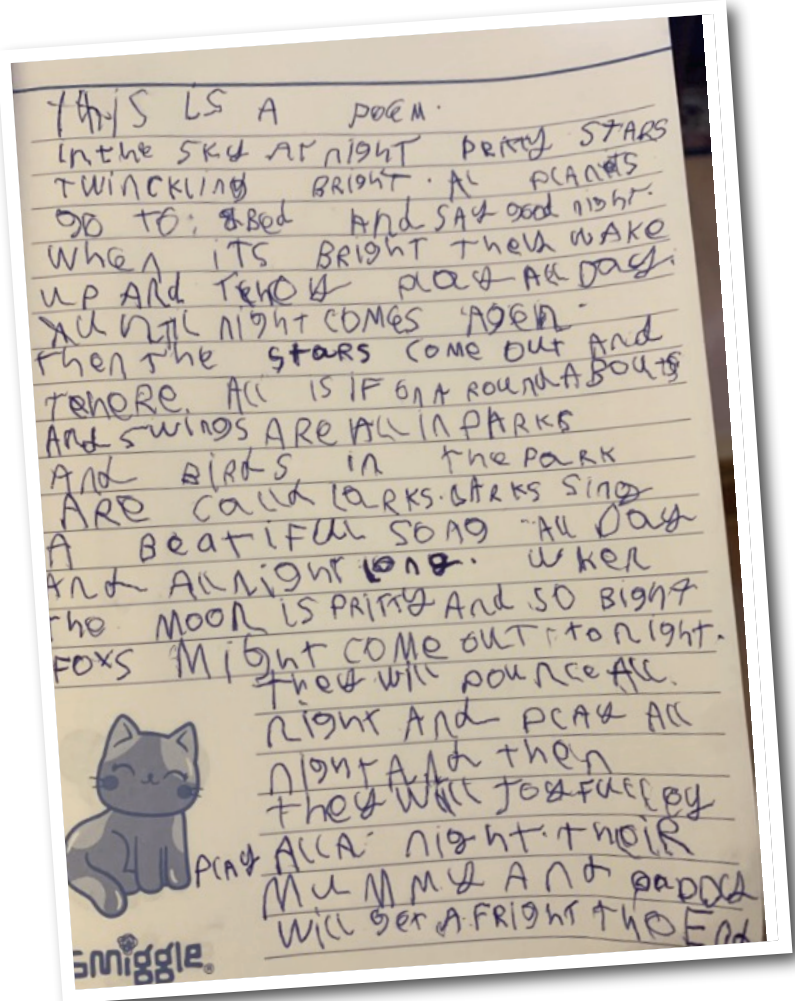 this is A poem.
in the sky At night pritty STARS
TWINCKLING BRIGHT. All PLANETS
go To: Bed And SAY good night.
when iTS BRIGHT they wAKE
up And play All Day.
UNTIL night COMES AGEN.
then the STARS COME OUT And
TEHERE. All IS IF ON A ROUNDABOUTS
And swings ARE All in PARKS
And BIRdS in the PARK
ARE calld LARKS. LARKS Sing
A BeATiFUll SONG All Day
And All night long. wHen
the MOON iS PRITTY And SO BIGHT
FOXS Might COME OUT to night.
they will pounce All.
night And PLAY All
night And then
they will JOYFULLEY
PLAY All A night. theiR
MUMMY And DADDY
will get A FRIGHT the End
smiggle®